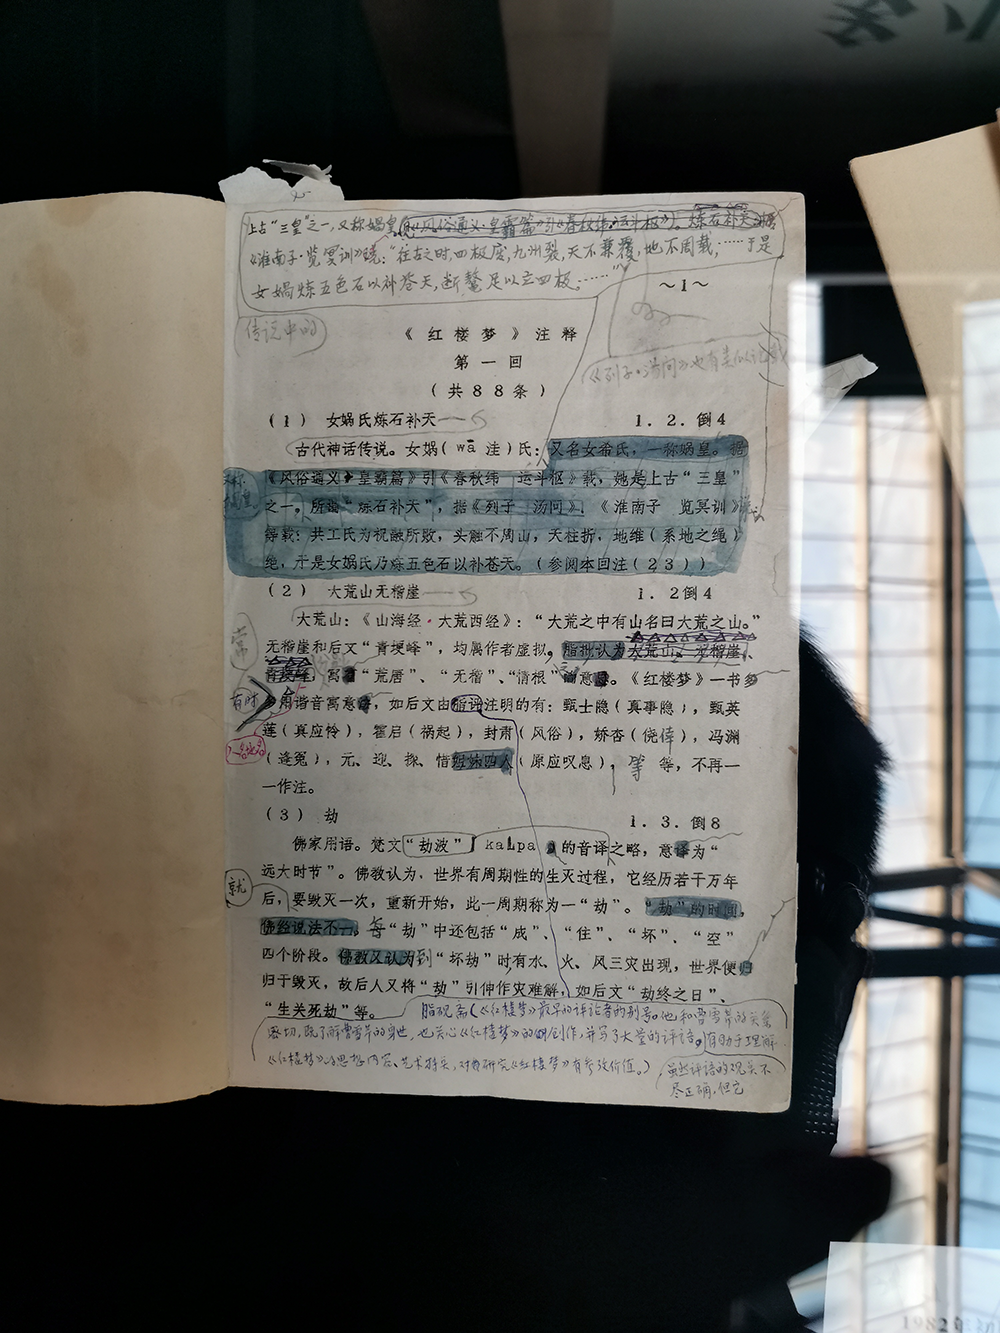 上古“三皇”之一，又称娲皇（见《风俗通义·皇霸篇》引《春秋纬·运斗极》）。炼石补天
《淮南子·览冥训》说：“往古之时，四极废，九州裂，天不兼覆，地不周载；……于是
女娲炼五色石以补苍天，断鳌足以立四极；……”
～1～
传说中的
《红楼梦》注释
第一回
《列子·汤问》也有类似记载
（共88条）
（1） 女娲氏炼石补天 1．2．倒4
古代神话传说。女娲（wā 洼）氏：又名女希氏，一称娲皇。据
《风俗通义·皇霸篇》引《春秋纬 运斗枢》载，她是上古“三皇”
之一。所谓“炼石补天”，据《列子 汤问》、《淮南子 览冥训》
等载：共工氏为祝融所败，头触不周山，天柱折，地维（系地之绳）
绝，于是女娲氏乃炼五色石以补苍天。（参阅本回注（23））
（2） 大荒山无稽崖 1．2倒4
大荒山：《山海经·大荒西经》：“大荒之中有山名曰大荒之山。”
常
无稽崖和后文“青埂峰”，均属作者虚拟。脂批认为大荒山、无稽崖、
青埂峰，寓“荒唐”、“无稽”、“情根”意。《红楼梦》一书多
有时
用谐音寓意，如后文由脂评注明的有：甄士隐（真事隐），甄英
莲（真应怜），霍启（祸起），封肃（风俗），娇杏（侥倖），冯渊
人名地名
（逢冤），元、迎、探、惜姐妹四人（原应叹息），等等，不再一
一作注。
（3） 劫 1．3．倒8
佛家用语。梵文“劫波” kalpa 的音译之略，意译为“
远大时节”。佛教认为，世界有周期性的生灭过程，它经历若干万年
就
后，要毁灭一次，重新开始，此一周期称为一“劫”。“劫”的时间，
佛经说法不一。每“劫”中还包括“成”、“住”、“坏”、“空”
四个阶段。佛教又认为到“坏劫”时有水、火、风三灾出现，世界便归
归于毁灭，故后人又将“劫”引伸作灾难解，如后文“劫终之日”、
“生关死劫”等。
脂砚斋（《红楼梦》最早的评论者的别号。他和曹雪芹的关系
密切，既了解曹雪芹的身世，也关心《红楼梦》的创作，并写了大量的评语。有助于理解
《红楼梦》的思想内容、艺术特点，对研究《红楼梦》有参考价值。）
虽然评语的观点不
尽正确，但它
1982年